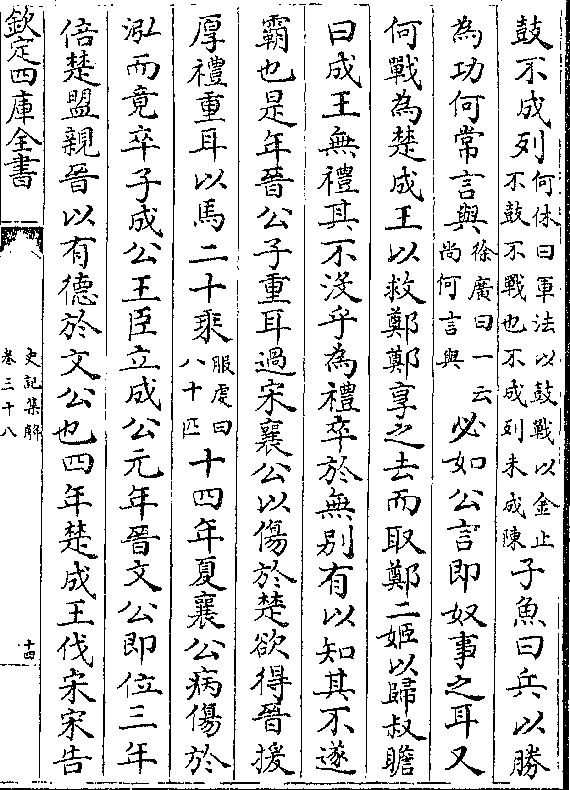 鼓不成列何休曰軍法以鼓戰以金止不鼓不戰也不成列未成陳子魚曰兵以勝
為功何常言與徐廣曰一云尚何言與必如公言即奴事之耳又
何戰為楚成王以救鄭鄭享之去而取鄭二姬以歸叔瞻
曰成王無禮其不沒乎為禮卒於無別有以知其不遂
霸也是年晉公子重耳過宋襄公以傷於楚欲得晉援
厚禮重耳以馬二十乘服虔曰八十匹十四年夏襄公病傷於
泓而竟卒子成公王臣立成公元年晉文公即位三年
倍楚盟親晉以有德於文公也四年楚成王伐宋宋告
欽定四庫全書
史記集解
卷三十八
十四